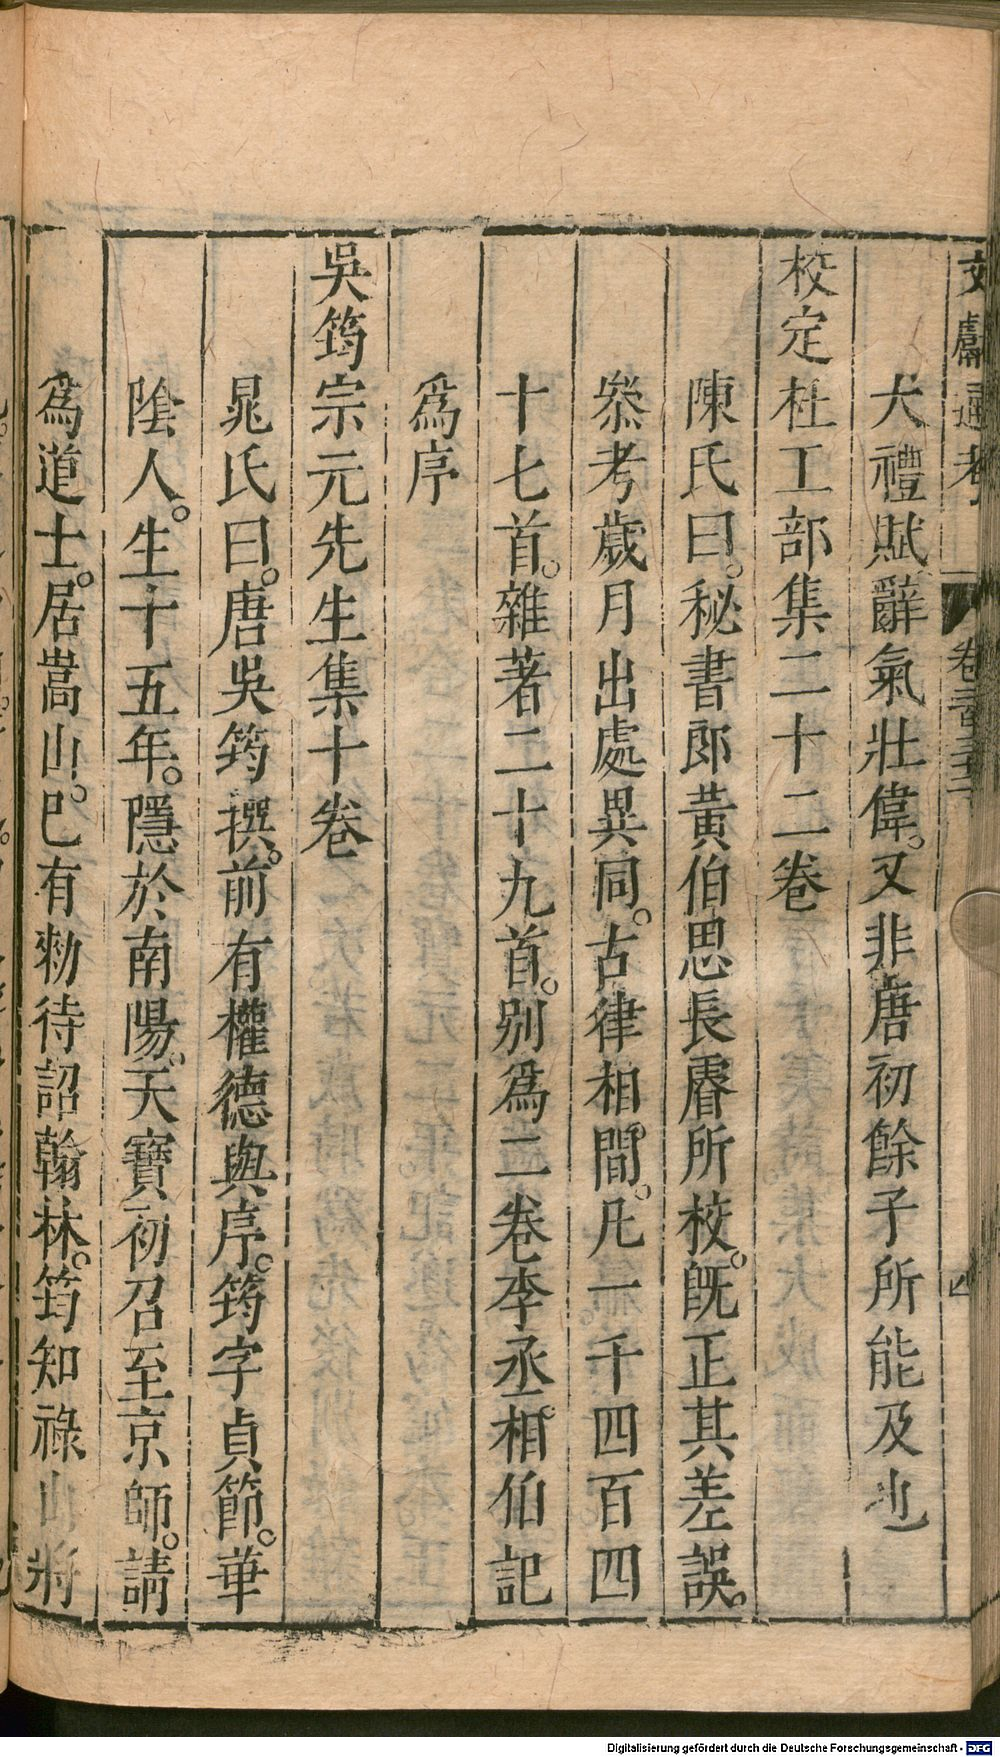 文獻通考 卷二百三十二
大禮賦辭氣壯偉。又非唐初餘子所能及也
校定杜工部集二十二卷
陳氏曰。秘書郎黃伯思長睿所校。旣正其差誤。
叅考歲月出處異同。古律相間。凡一千四百四
十七首。雜著二十九首。別爲二卷李丞相伯記
爲序
吳筠宗元先生集十卷
晁氏曰。唐吳筠撰。前有權德輿序。筠字貞節。華
陰人。生十五年。隱於南陽。天寶初召至京師。請
爲道士。居嵩山。巳有勑待詔翰林。筠知祿山將
Digitalisierung gefördert durch die Deutsche Forschungsgemeinschaft - DFG